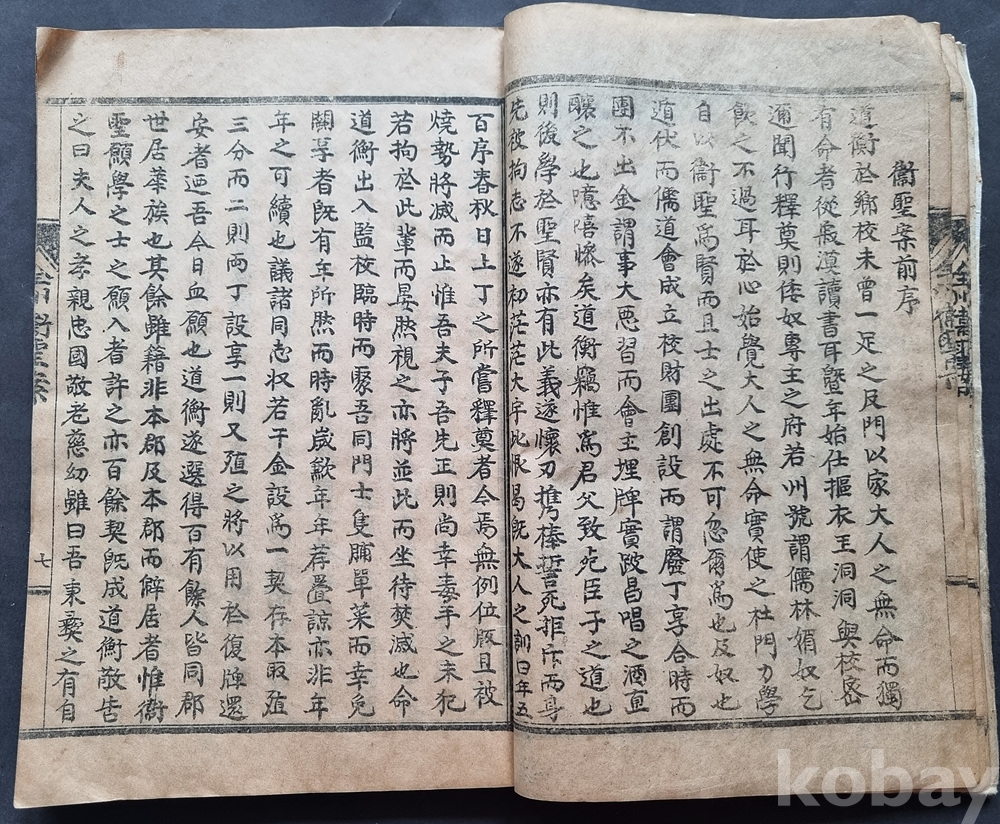 衞聖案前序
道衡於鄉校未曾一足之及門以家大人之無命而獨
有命者從仮漠讀書耳曁年始仕摳衣王洞洞與校密
邇聞行釋奠則倭奴專主之府若州號謂儒林媚奴乞
餕之不過耳於心始覺大人之無命實使之杜門力學
自以衞聖爲賢而且士之出處不可忽爾爲也及奴也
遁伏而儒道會成立校財團創設而謂廢丁享合時而
團不出金謂事大惡習而會主埋牌實跛昌唱之酒亘
釀之也噫嘻慘矣道衡竊惟爲君父致死臣子之道也
則後學於聖賢亦有此義遂懷刃携棒誓死拒斥而身
先被拘志不遂初茫茫大宇此恨曷旣大人之訓曰年五
百序春秋日上丁之所嘗釋奠者今焉無例位版且被
燒勢將滅而止惟吾夫子吾先正則尚幸毒手之未犯
若拘於此輩而晏然視之亦將並此而坐待焚滅也命
道衡出入監校臨時而聚吾同門士隻脯單菜而幸免
闕享者旣有年所然而時亂歲歉年年荐疊諒亦非年
年之可續也議諸同志収若干金設爲一契存本取殖
三分而二則両丁設享一則又殖之將以用於復牌還
安者迺吾今日血願也道衡遂選得百有餘人皆同郡
世居華族也其餘雖籍非本郡及本郡而僻居者惟衞
聖願學之士之願入者許之亦百餘契旣成道衡敬告
之曰夫人之孝親忠國敬老慈幼雖曰吾東彛之有自
衞聖案
七
kobay